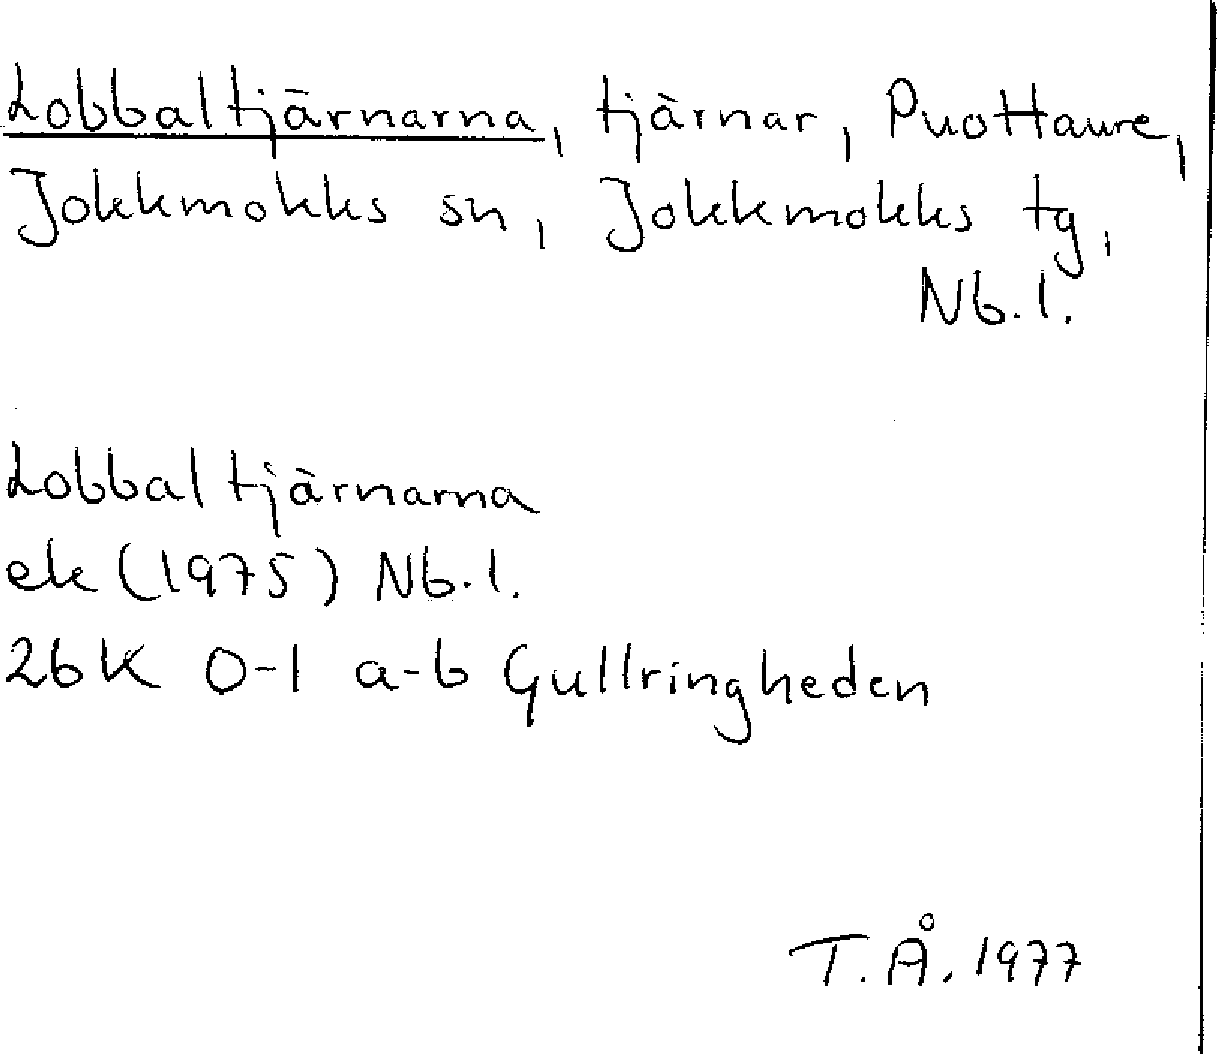 Lobbaltjärnarna, tjärnar, Puottaure,
Jokkmokks sn, Jokkmokks tg,
Nb.l.
Lobbaltjärnarna
ek (1975) Nb.l.
26K 0-1 a-b Gullringheden
T.Å. 1977